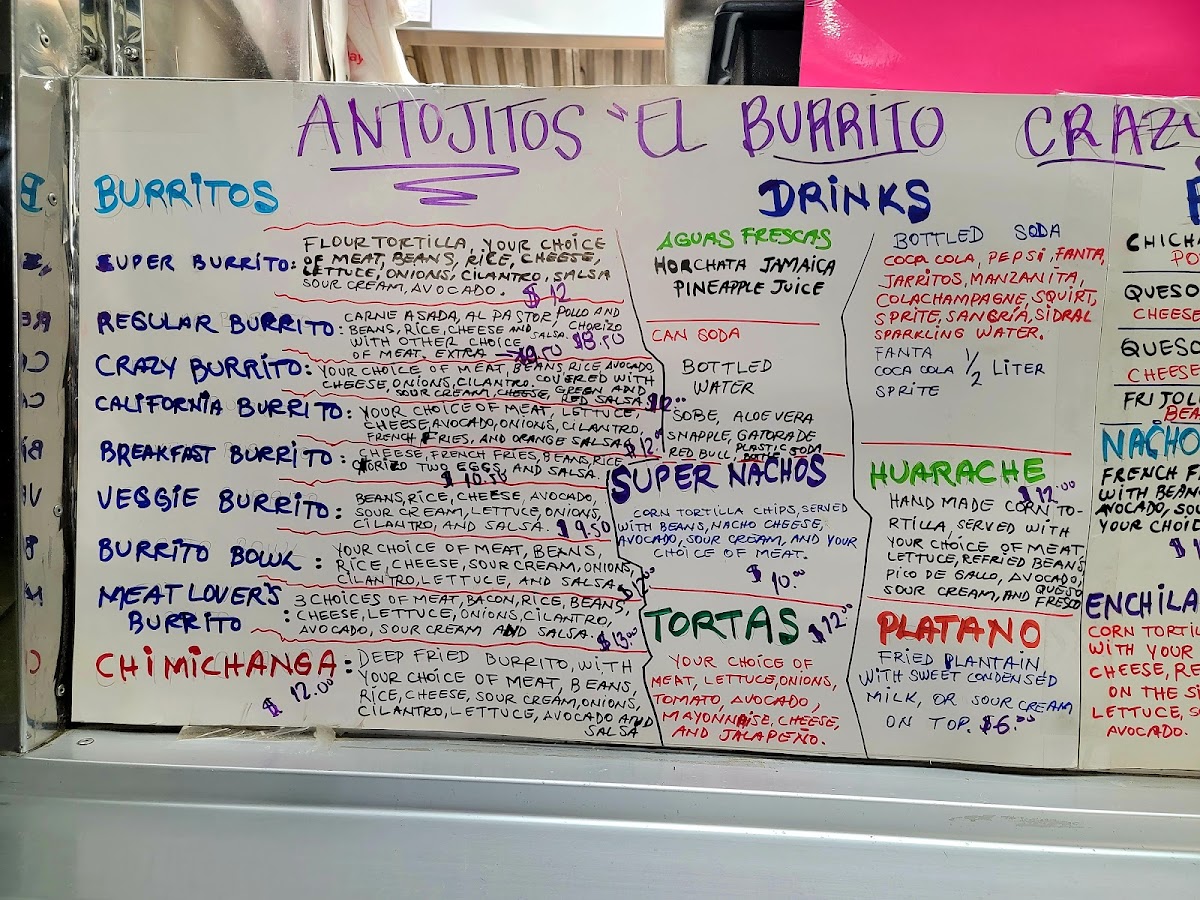 ANTOJITOS "EL BURRITO CRAZY
BURRITOS
SUPER BURRITO:
FLOUR TORTILLA, YOUR CHOICE
OF MEAT, BEANS, RICE, CHEESE,
LETTUCE, ONIONS, CILANTRO, SALSA
SOUR CREAM, AVOCADO. $12
REGULAR BURRITO:
CARNE ASADA, AL PASTOR, POLLO AND CHORIZO
BEANS, RICE, CHEESE AND SALSA. $8.50
WITH OTHER CHOICE
OF MEAT. EXTRA → $9.50
CRAZY BURRITO:
YOUR CHOICE OF MEAT, BEANS, RICE, AVOCADO,
CHEESE, ONIONS, CILANTRO, COVERED WITH
SOUR CREAM, CHEESE, GREEN AND
RED SALSA.
CALIFORNIA BURRITO:
YOUR CHOICE OF MEAT, LETTUCE,
CHEESE, AVOCADO, ONIONS, CILANTRO,
FRENCH FRIES, AND ORANGE SALSA. $12.00
BREAKFAST BURRITO:
CHEESE, FRENCH FRIES, BEANS, RICE
CHORIZO TWO EGGS, AND SALSA.
$10.50
VEGGIE BURRITO:
BEANS, RICE, CHEESE, AVOCADO,
SOUR CREAM, LETTUCE, ONIONS,
CILANTRO, AND SALSA. $9.50
BURRITO BOWL:
YOUR CHOICE OF MEAT, BEANS,
RICE, CHEESE, SOUR CREAM, ONIONS,
CILANTRO, LETTUCE, AND SALSA. $12.00
MEAT LOVER'S
BURRITO:
3 CHOICES OF MEAT, BACON, RICE, BEANS,
CHEESE, LETTUCE, ONIONS, CILANTRO,
AVOCADO, SOUR CREAM AND SALSA. $13.00
CHIMICHANGA:
$12.00
DEEP FRIED BURRITO, WITH
YOUR CHOICE OF MEAT, BEANS,
RICE, CHEESE, SOUR CREAM, ONIONS,
CILANTRO, LETTUCE, AVOCADO AND
SALSA
DRINKS
AGUAS FRESCAS
HORCHATA JAMAICA
PINEAPPLE JUICE
CAN SODA
BOTTLED
WATER
SOBE, ALOE VERA
SNAPPLE, GATORADE
RED BULL PLASTIC SODA
BOTTLED SODA
COCA COLA, PEPSI, FANTA,
JARRITOS, MANZANITA,
COLACHAMPAGNE, SQUIRT,
SPRITE, SANGRIA, SIDRAL
SPARKLING WATER.
FANTA
COCA COLA 1/2 LITER
SPRITE
SUPER NACHOS
CORN TORTILLA CHIPS, SERVED
WITH BEANS, NACHO CHEESE,
AVOCADO, SOUR CREAM, AND YOUR
CHOICE OF MEAT.
$10.00
TORTAS $12.00
YOUR CHOICE OF
MEAT, LETTUCE, ONIONS,
TOMATO, AVOCADO,
MAYONNAISE, CHEESE,
AND JALAPEÑO.
HUARACHE
$12.00
HAND MADE CORN TO-
RTILLA, SERVED WITH
YOUR CHOICE OF MEAT,
LETTUCE, REFRIED BEANS,
PICO DE GALLO, AVOCADO,
SOUR CREAM, AND QUESO
FRESCO
PLATANO
FRIED PLANTAIN
WITH SWEET CONDENSED
MILK, OR SOUR CREAM
ON TOP. $6.00
CHICHA
PO
QUESO
CHEESE
QUESO
CHEESE
FRIJOL
BEA
NACHO
FRENCH F
WITH BEAN
AVOCADO, SO
YOUR CHOIC
ENCHILA
CORN TORTIL
WITH YOUR
CHEESE, RE
ON THE SI
LETTUCE, SO
AVOCADO.